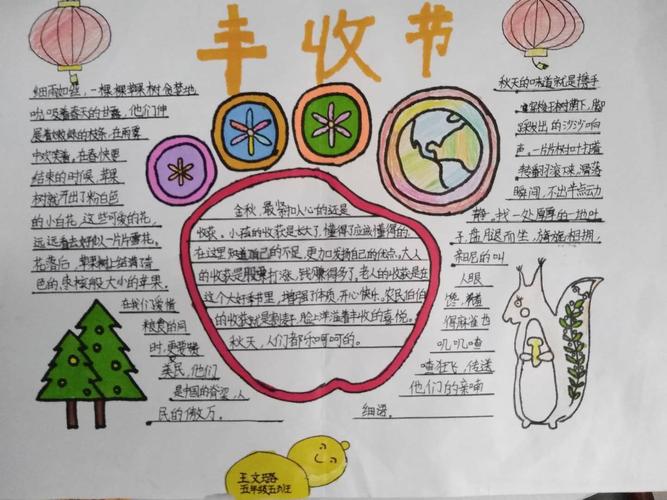 丰收节
细雨如丝,一棵棵苹果树贪婪地
吮吸着春天的甘露,他们伸
展着嫩嫩的枝条,在雨雾
中欢笑着,在春快要
结束的时候,苹果
树就开出了粉白色
的小白花,这些可爱的花,
远远看去好似一片片雪花。
花落后,苹果树上结满青
色的,枣核般大小的苹果。
在我们爱惜
粮食的同
时,更要赞
美民,他们
是中国的脊梁,人
民的傲万。
金秋,最紧扣人心的还是
收获。小孩的收获是长大了,懂得了应该懂得的,
在这里知道自己的不足,更加发扬自己的优点。大人
的收获是股票打涨,钱赚得多了,老人的收获是在
这个大好季节里,增强了体质,开心快乐,农民伯伯
的收获就是割麦子,脸上洋溢着丰收的喜悦。
秋天,人们都乐呵呵的。
秋天的味道就是携手
穿梭于树荫下,脚
踩发出的沙沙响
声。一片片树叶打着
转翻滚下来,落落
瞬间,不出半点动
静,找一处厚厚的地叶
子,盘腿而坐,旖旎相拥,
人眼
馋,横
得麻雀也
叽叽喳
喳狂飞,传送
他们的亲喃
细语。
王文璐
五年级五班